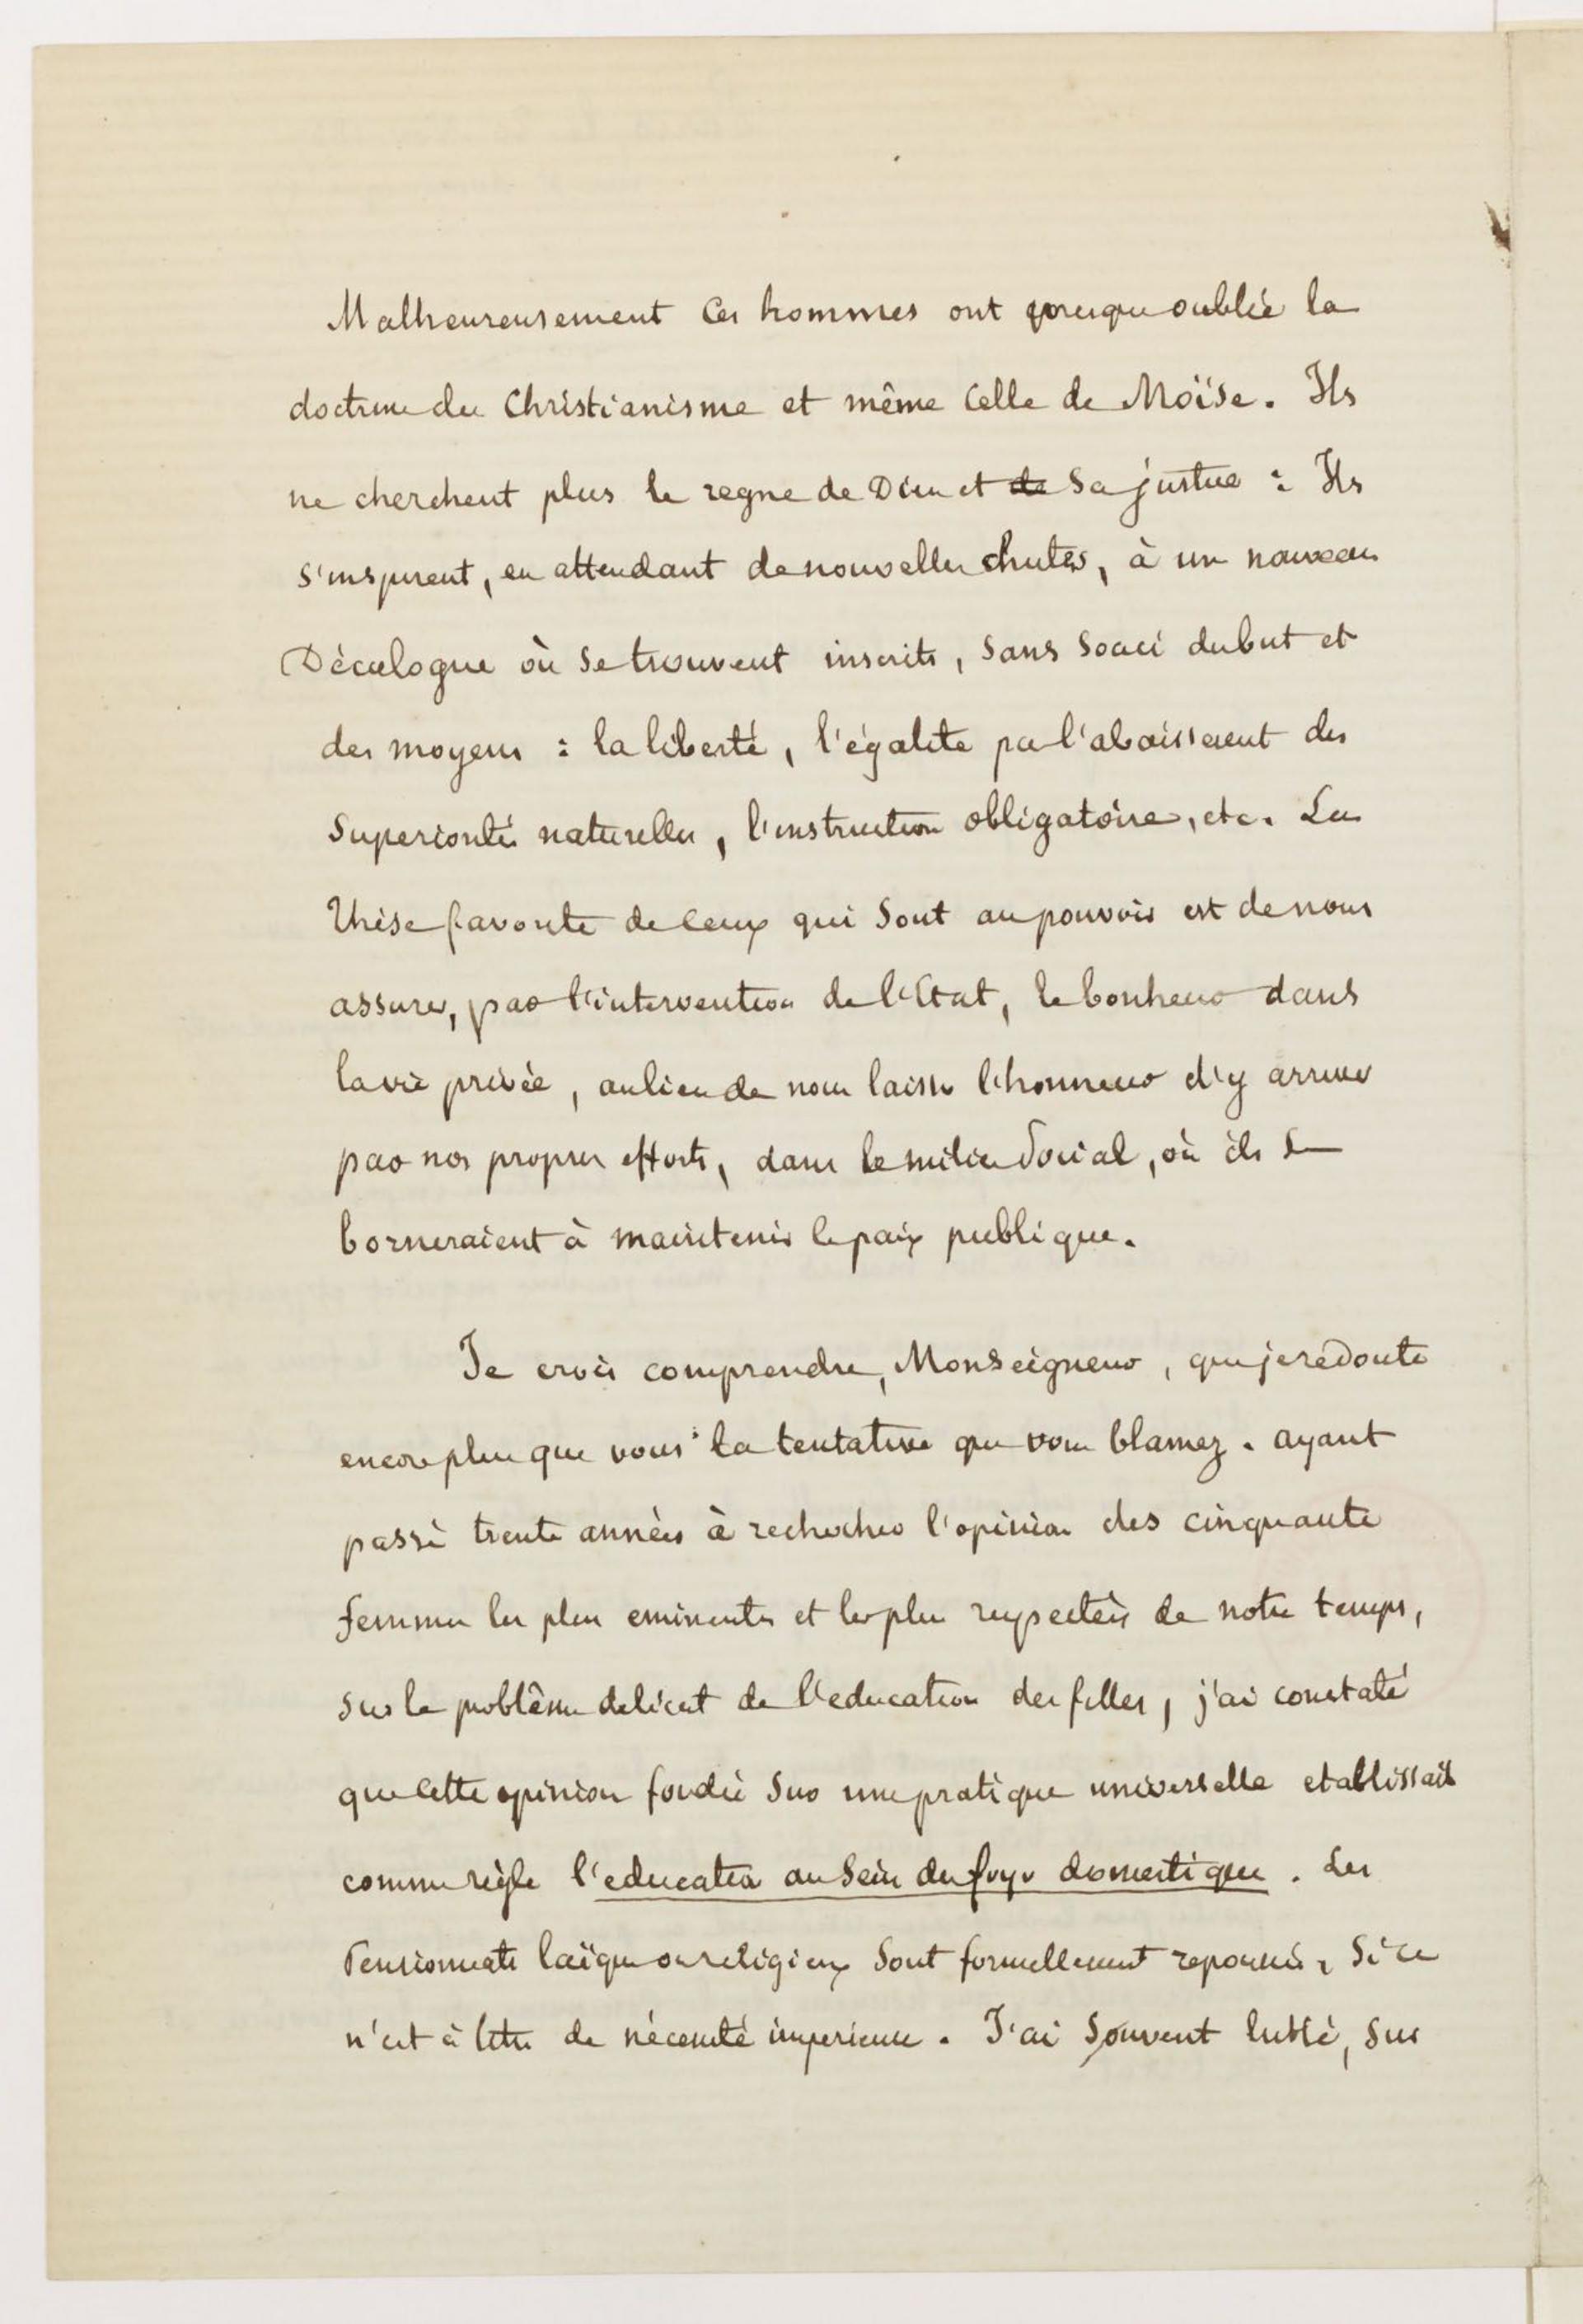 Malheureusement ces hommes ont presque oublié la
doctrine du Christianisme et même celle de Moïse. Ils
ne cherchent plus le regne de Dieu et de sa justice : Ils
s'inspirent, en attendant de nouvelles chutes, à un nouveau
Décalogue où se trouvent inscrits, sans souci du but et
des moyens : la liberté, l'égalite par l'abaissement des
superiorités naturelles, l'instruction obligatoire, etc. La
thèse favorite de ceux qui sont au pouvoir est de nous
assurer, par l'intervention de l'Etat, le bonheur dans
la vie privée, au lieu de nous laisser l'honneur d'y arriver
par nos propres efforts, dans le milieu social, où ils se
borneraient à maintenir la paix publique.
Je crois comprendre, Monseigneur, que je redoute
encore plus que vous la tentative que vous blamez. ayant
passé trente années à rechercher l'opinion des cinquante
femmes les plus eminentes et les plus respectées de notre temps,
sur le problême delicat de l'education des filles, j'ai constaté
que cette opinion fondée sur une pratique universelle etablissait
comme règle l'education au sein du foyer domestique. Les
Pensionnats laïques ou religieux sont formellement repoussés, si ce
n'est à titre de nécessité imperieuse. J'ai souvent lutté, sur